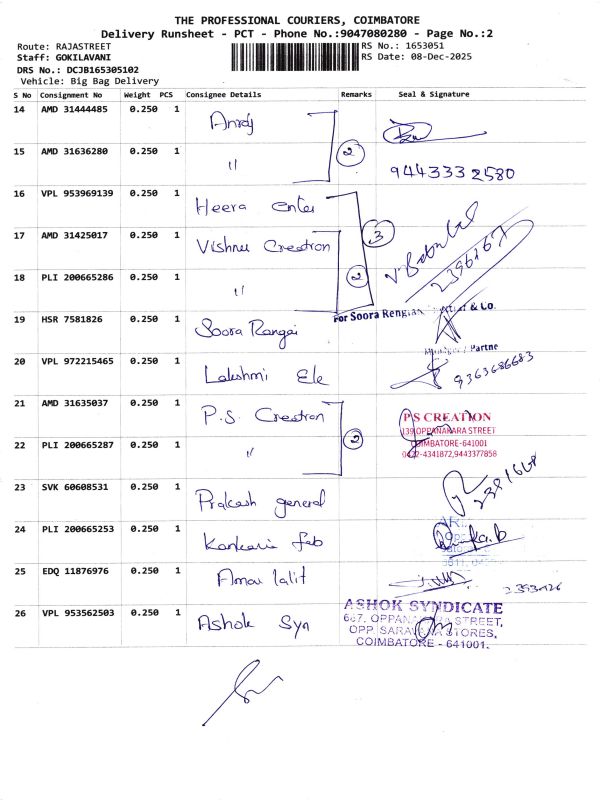 THE PROFESSIONAL COURIERS, COIMBATORE
Delivery Runsheet - PCT - Phone No.:9047080280 - Page No.:2
Route: RAJASTREET
RS No.: 1653051
Staff: GOKILAVANI
RS Date: 08-Dec-2025
DRS No.: DCJB165305102
Vehicle: Big Bag Delivery
S No Consignment No Weight PCS Consignee Details Remarks Seal & Signature
14 AMD 31444485 0.250 1
15 AMD 31636280 0.250 1 " 2 9443332580
16 VPL 953969139 0.250 1 Heera Enter 3
17 AMD 31425017 0.250 1 Vishnu Creation
2396167
18 PLI 200665286 0.250 1 " 2
For Soora Rengan & Co.
19 HSR 7581826 0.250 1 Soora Rangai
Partne
20 VPL 972215465 0.250 1 Lakshmi Ele 9363686683
21 AMD 31635037 0.250 1 P.S. Creation
P S CREATION
139 OPPANAKARA STREET
22 PLI 200665287 0.250 1 " 2
COIMBATORE-641001
0422-4341872,9443377858
23 SVK 60608531 0.250 1 Prakash general
24 PLI 200665253 0.250 1 Kankari fab
25 EDQ 11876976 0.250 1 Amar lalit
26 VPL 953562503 0.250 1 Ashok Syn
ASHOK SYNDICATE
667, OPPANAKARA STREET,
OPP. SARAVANA STORES,
COIMBATORE - 641001.